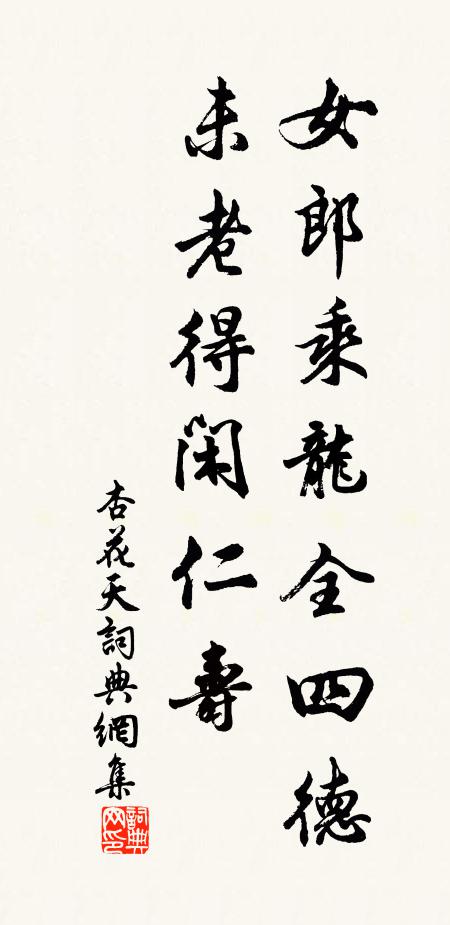 女郎乘龍全四德
未老得閑仁壽
杏花天詞典網集
詞典网印